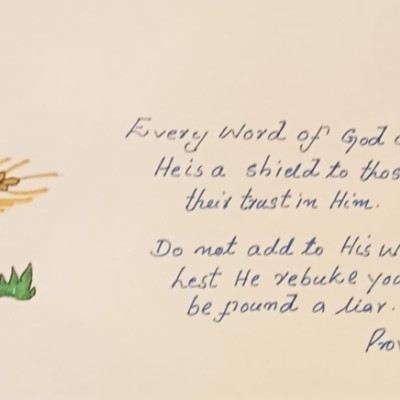 Every Word of God
He is a shield to thos
their trust in Him.
Do not add to His w
Lest He rebuke you
be found a liar.
Prov